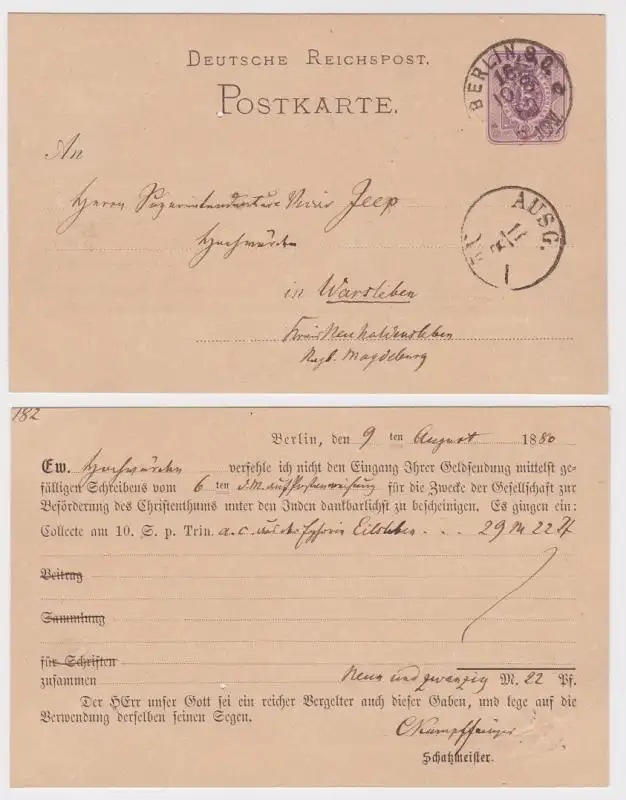 DEUTSCHE REICHSPOST.
POSTKARTE.
BERLIN S.O.
An
Herrn Jeep
Hochwürden
AUSG.
in Warsleben
Kreis Neuhaldensleben
Magdeburg
182
Berlin, den 9 ten August 1880
Ew. Hochwürden verfehle ich nicht den Eingang Ihrer Geldsendung mittelst ge-
fälligen Schreibens vom 6 ten d. M. auf Postanweisung für die Zwecke der Gesellschaft zur
Beförderung des Christenthums unter den Juden dankbarlichst zu bescheinigen. Es gingen ein:
Collecte am 10. S. p. Trin. a. c. aus der Ephorie Eilsleben . . . 29 M 22 Pf
Beitrag
Sammlung
für Schriften
zusammen Neun und zwanzig M. 22 Pf.
Der HErr unser Gott sei ein reicher Vergelter auch dieser Gaben, und lege auf die
Verwendung derselben seinen Segen.
Schatzmeister.